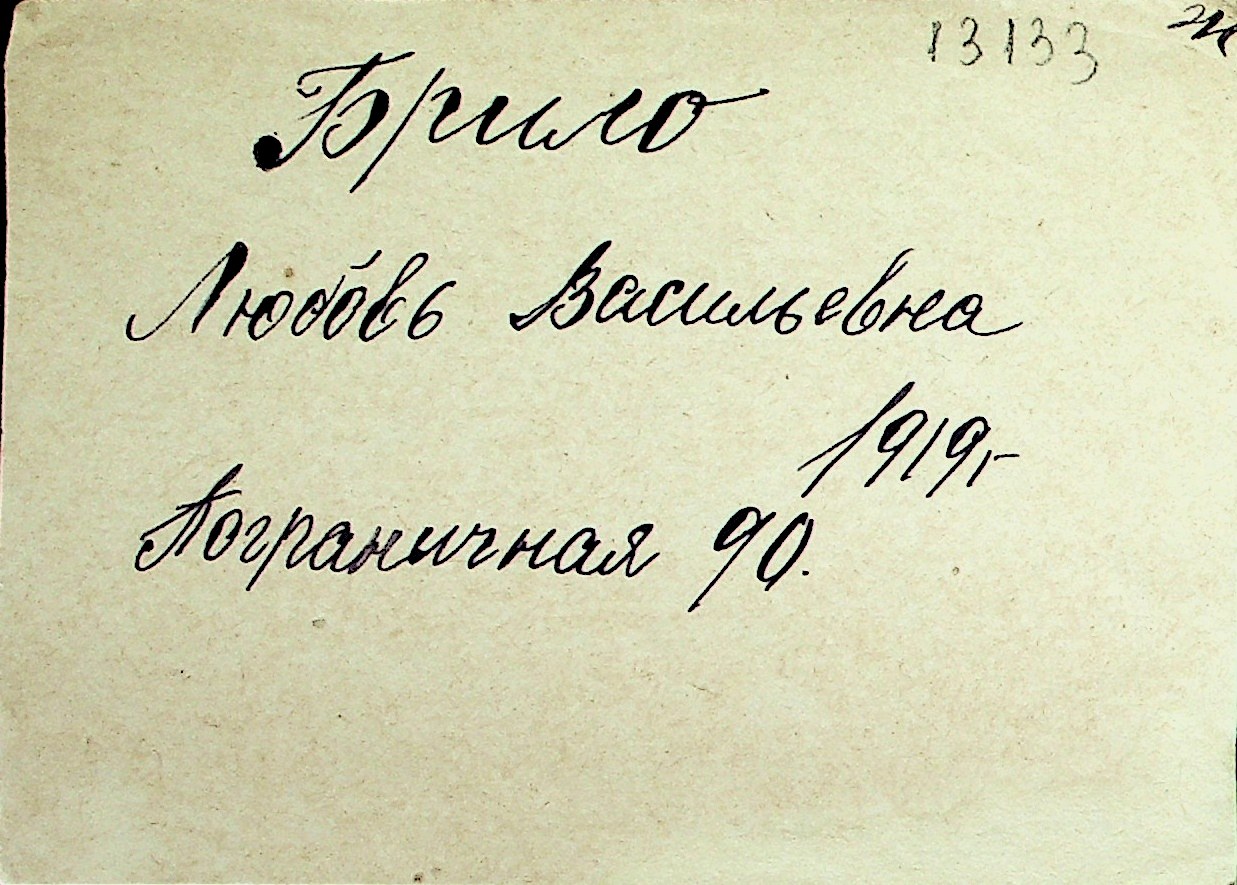 13133 ж
Брило
Любовь Васильевна
1919 г
Пограничная 90.